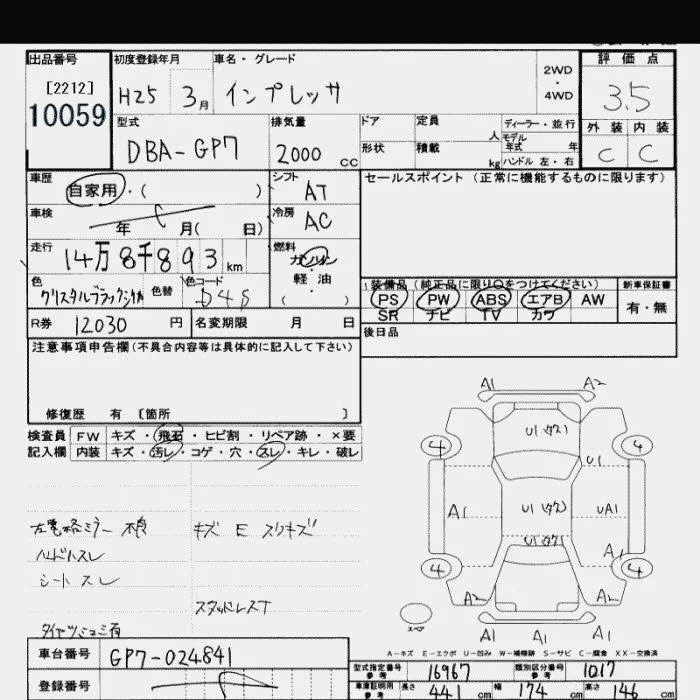 出品番号
[2212]
10059
初度登録年月
H25 3月
車名・グレード
インプレッサ
2WD
・
4WD
評価点
3.5
外装 内装
C C
型式
DBA-GP7
排気量
2000 CC
ドア
形状
定員
人
積載
kg
ディーラー・並行
モデル
年式 年
ハンドル 左・右
車歴
自家用・( )
シフト
AT
セールスポイント(正常に機能するものに限ります)
車検
年 月( 日)
冷房
AC
走行
14万8千893km
燃料
ガソリン
軽・油
( )
色
クリスタルブラックシリカ
色替
色コード
D4S
装備品(純正品に限り○をつけてください)
PS PW ABS エアB AW
SR ナビ TV カワ
新車保証書
有・無
R券 12030 円
名変期限 月 日
後日品
注意事項申告欄(不具合内容等は具体的に記入して下さい)
修復歴 有 [箇所 ]
検査員 FW キズ・飛石・ヒビ割・リペア跡・×要
記入欄 内装 キズ・汚レ・コゲ・穴・スレ・キレ・破レ
左電格ミラー不良
キズ E スリキズ
ハンドルスレ
シートスレ
スタッドレスT
A1 A2
4 4
U1
U1
A1 UA1
U1
A1
4 4
A2 A2
スペア
A1 A1 A1
A-キズ E-エクボ U-凹み W-補修跡 S-サビ C-腐食 XX-交換済
車台番号
GP7-024841
登録番号
型式指定番号
参考
16967
類別区分番号
参考
1017
車庫証明用
参考
長さ 441 cm
幅 174 cm
高さ 146 cm